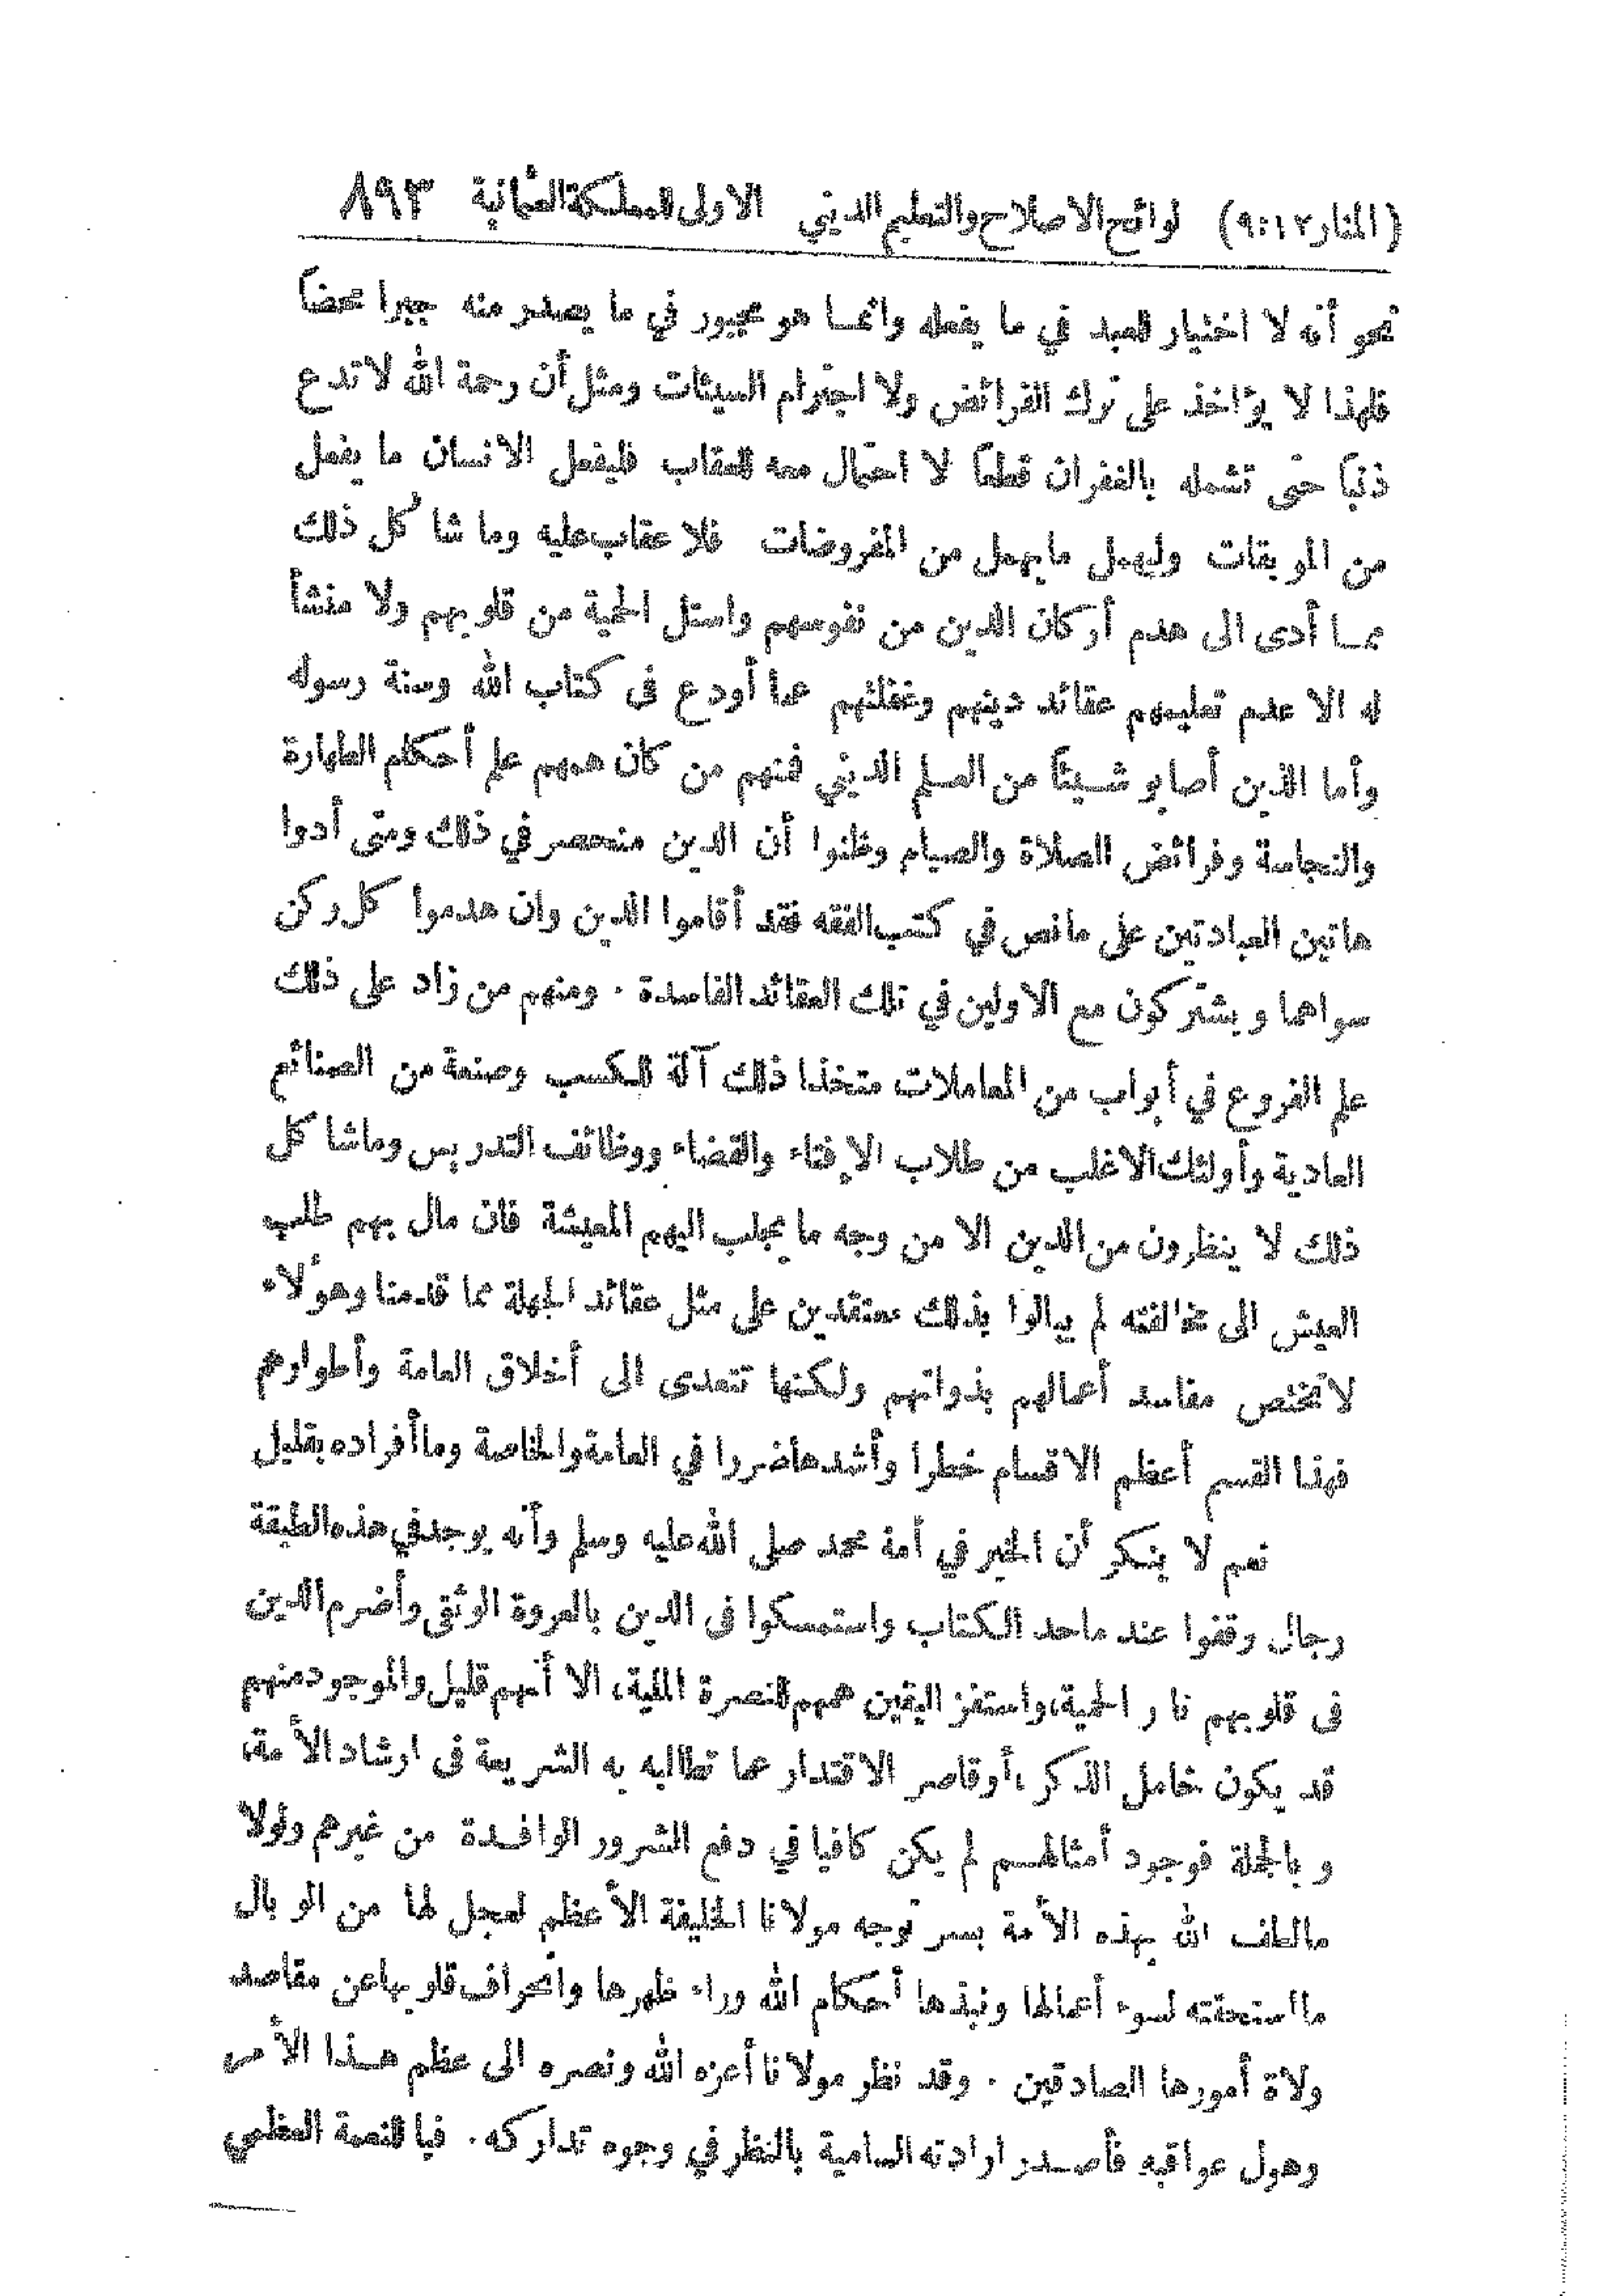 (المنار ١٢:٩) لوائح الاصلاح والتعليم الديني الاولى للمملكة العثمانية ٨٩٣
نحو أنه لا اختيار للعبد في ما يفعله وانما هو مجبور في ما يصدر منه جبرا محضاً
فلهذا لا يؤاخذ على ترك الفرائض ولا اجترام السيئات ومثل أن رحمة الله لا تدع
ذنباً حتى تشمله بالغفران قطعاً لا احتمال معه للعقاب فليفعل الانسان ما يفعل
من الموبقات وليهمل ما يهمل من المفروضات فلا عقاب عليه وما شاكل ذلك
مما أدى الى هدم أركان الدين من نفوسهم واستل الحمية من قلوبهم ولا منشأ
له الا عدم تعليمهم عقائد دينهم وغفلتهم عما أودع فى كتاب الله وسنة رسوله
وأما الذين أصابو شيئاً من العلم الديني فمنهم من كان همهم علم أحكام الطهارة
والنجاسة وفرائض الصلاة والصيام وظنوا أن الدين منحصر في ذلك ومتى أدوا
هاتين العبادتين على ما نص في كتب الفقه فقد أقاموا الدين وان هدموا كل ركن
سواهما ويشتركون مع الاولين في تلك العقائد الفاسدة . ومنهم من زاد على ذلك
علم الفروع في أبواب من المعاملات متخذا ذلك آلة للكسب وصنعة من الصنائع
العادية وأولئك الاغلب من طلاب الإفتاء والقضاء ووظائف التدريس وما شاكل
ذلك لا ينظرون من الدين الا من وجه ما يجلب اليهم المعيشة فان مال بهم طلب
العيش الى مخالفته لم يبالوا بذلك معتقدين على مثل عقائد الجهلة مما قدمنا وهؤلاء
لا تختص مفاسد أعمالهم بذواتهم ولكنها تتعدى الى أخلاق العامة وأطوارهم
فهذا القسم أعظم الاقسام خطرا وأشدها ضررا في العامة والخاصة وما أفراده بقليل
نعم لا ينكر أن الخير في أمة محمد صلى الله عليه وسلم وأنه يوجد في هذه الطبقة
رجال وقفوا عند ما حد الكتاب واستمسكوا فى الدين بالعروة الوثقى وأضرم الدين
فى قلوبهم نار الحمية، واستفز اليقين هممهم لنصرة الملية، الا أنهم قليل والموجود منهم
قد يكون خامل الذكر، أو قاصر الاقتدار عما تطالبه به الشريعة فى ارشاد الأمة،
وبالجملة فوجود أمثالهم لم يكن كافيا في دفع الشرور الوافدة من غيرهم ولولا
ما لطف الله بهذه الأمة بسر توجه مولانا الخليفة الأعظم لعجل لها من الوبال
ما استحقته لسوء أعمالها ونبذها أحكام الله وراء ظهرها وانحراف قلوبها عن مقاصد
ولاة أمورها الصادقين . وقد نظر مولانا أعزه الله ونصره الى عظم هذا الأمر
وهول عواقبه فأصدر ارادته السامية بالنظر في وجوه تداركه . فيا للنعمة العظمى